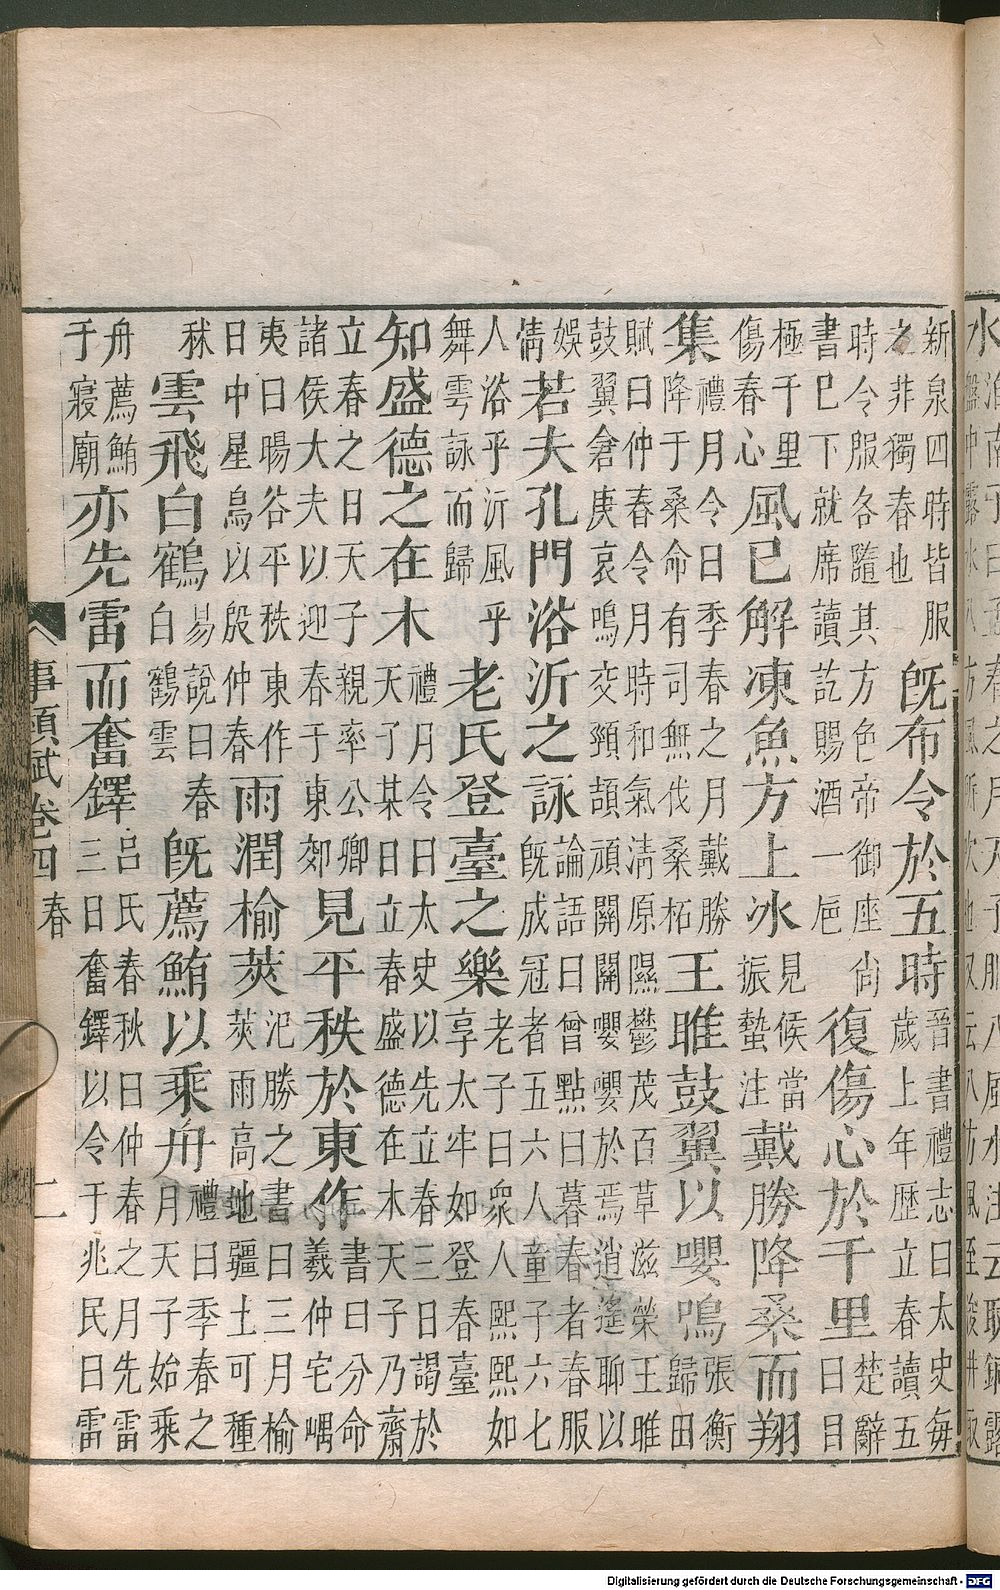 新泉四時皆服之非獨春也既布令於五時晉書禮志曰太史每歲上年歷立春讀五
時令服各隨其方色帝御座尚書已下就席讀訖賜酒一巵復傷心於千里楚辭曰目
極千里傷春心風已解凍魚方上冰見候當振蟄注戴勝降桑而翔
集禮月令曰季春之月戴勝降于桑命有司無伐桑柘王雎鼓翼以嚶鳴張衡歸田
賦曰仲春令月時和氣淸原隰鬱茂百草滋榮王雎鼓翼倉庚哀鳴交頸頡頏關關嚶嚶於焉逍遙聊以
娛情若夫孔門浴沂之詠論語曰曾點曰暮春者春服既成冠者五六人童子六七
人浴乎沂風乎舞雲詠而歸老氏登臺之樂老子曰衆人熙熙如享太牢如登春臺
知盛德之在木禮月令曰太史以先立春三日謁於天子某日立春盛德在木天子乃齋
立春之日天子親率公卿諸侯大夫以迎春于東郊見平秩於東作書曰分命羲仲宅嵎
夷曰暘谷平秩東作日中星鳥以殷仲春雨潤楡莢氾勝之書曰三月楡莢雨高地疆土可種
秫雲飛白鶴易說曰春白鶴雲既薦鮪以乘舟禮曰季春之月天子始乘
舟薦鮪于寢廟亦先雷而奮鐸呂氏春秋曰仲春之月先雷三日奮鐸以令于兆民曰雷
事類賦卷四 春 二
Digitalisierung gefördert durch die Deutsche Forschungsgemeinschaft - DFG